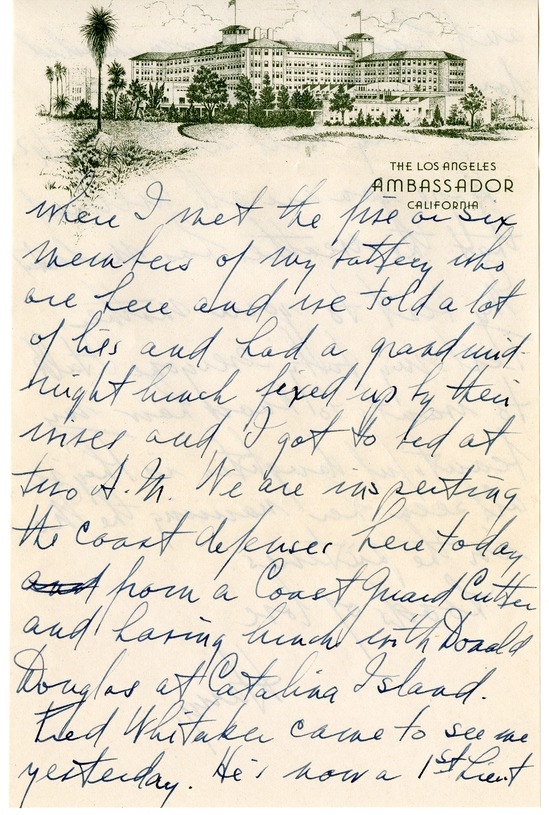 THE LOS ANGELES
AMBASSADOR
CALIFORNIA
where I met the five or six
members of my battery who
are here and we told a lot
of lies and had a grand mid-
night lunch fixed up by their
wives and I got to bed at
two A.M. We are inspecting
the coast defenses here today
and from a Coast Guard Cutter
and having lunch with Donald
Douglas at Catalina Island.
Fred Whitaker came to see me
yesterday. He's now a 1st Lieut